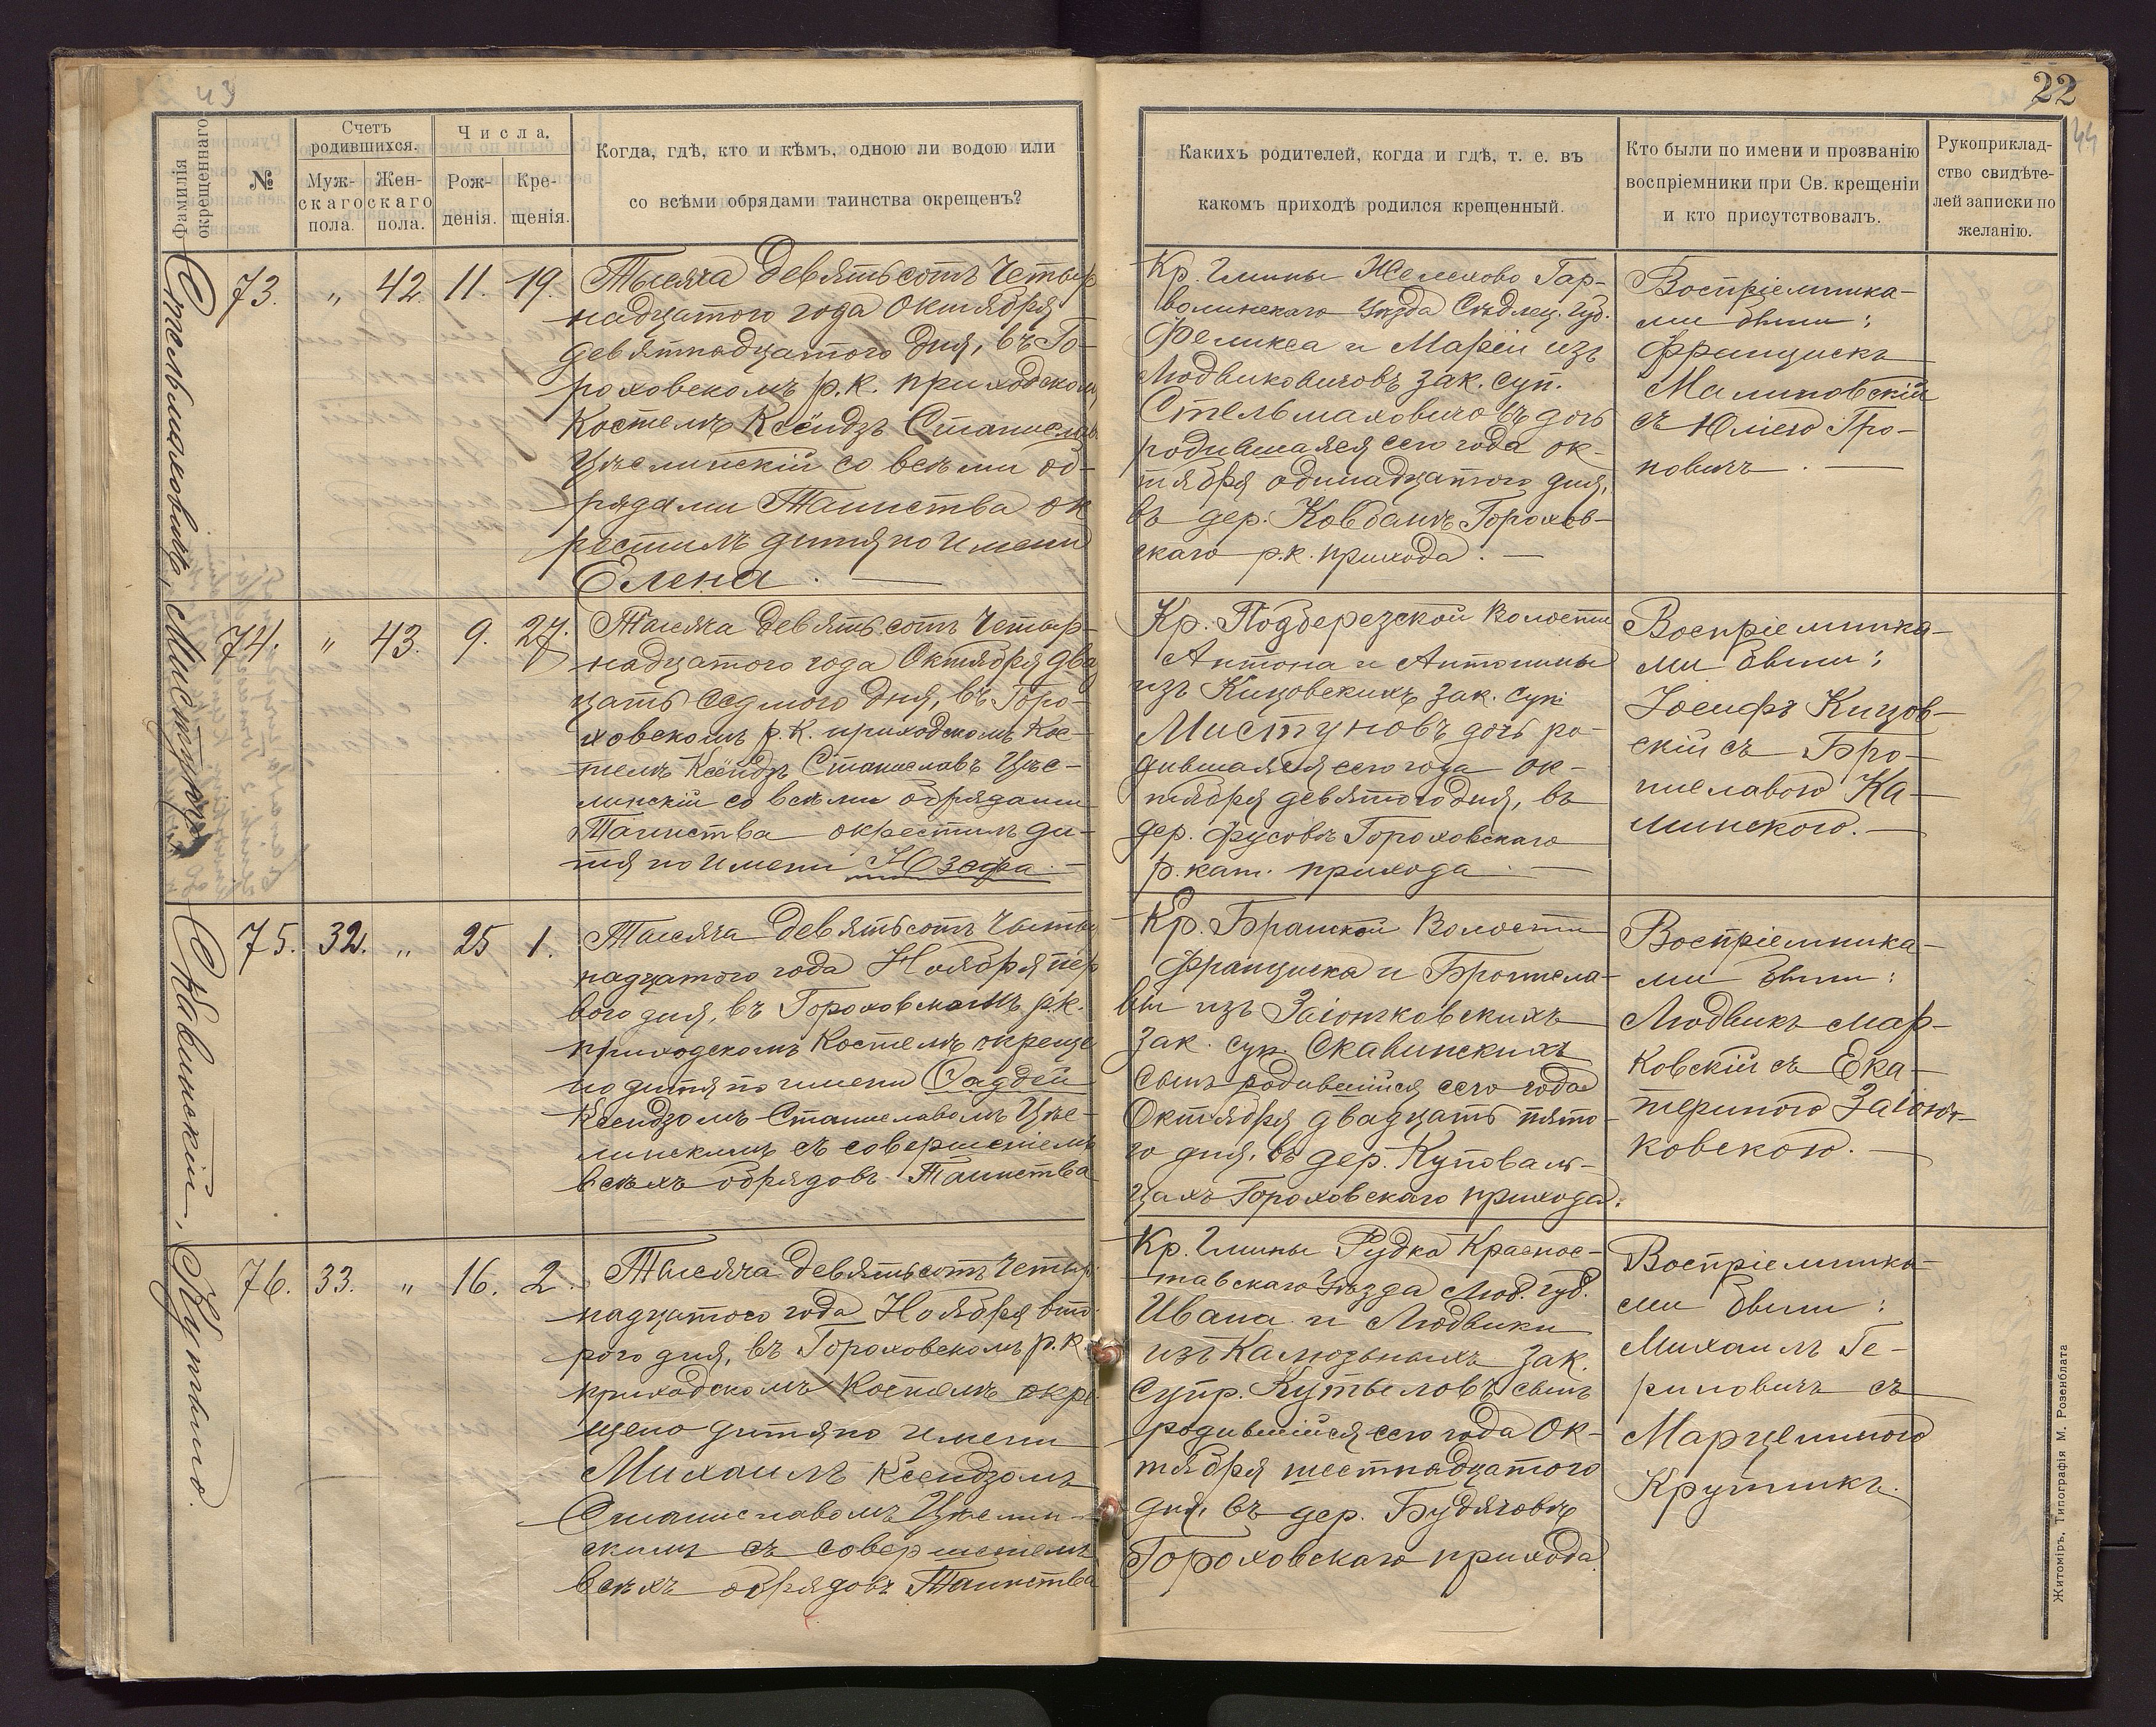 43
22
44
Фамилія окрещеннаго
№
Счетъ родившихся.
Мужскаго пола.
Женскаго пола.
Числа.
Рожденія.
Крещенія.
Когда, гдѣ, кто и кѣмъ, одною ли водою или
со всѣми обрядами таинства окрещенъ?
Какихъ родителей, когда и гдѣ, т. е. въ
какомъ приходѣ родился крещенный.
Кто были по имени и прозванію
воспріемники при Св. крещеніи
и кто присутствовалъ.
Рукоприклад-
ство свидѣте-
лей записки по
желанію.
Стельмаховичъ,
73. „ 42. 11. 19.
Тысяча девятьсотъ четыр
надцатого года Октября
девятнадцатого дня, въ Го-
роховскомъ р.к. приходском
Костелѣ Ксёндзъ Станислав
Цѣслинскій со всѣми об-
рядами Таинства ок
рестилъ дитя по имени
Елена. —
Кр. Гмины Желехово Гар-
волинскаго Уѣзда Сѣдлец. Губ.
Феликса и Маріи изъ
Людвиковичовъ зак. суп.
Стельмаховичовъ дочь
родившаяся сего года ок-
тября одинадцатого дня,
въ дер. Ковбанѣ Горохов-
скаго р.к. прихода. —
Воспріемника-
ми были:
Францискъ
Малиновскій
съ Юліею Гро-
новичъ. —
Мистунъ
74. „ 43. 9. 27.
Тысяча девятьсотъ четыр-
надцатого года Октября два
цать седмого дня, въ Горо-
ховскомъ р.к. приходскомъ Кос-
телѣ Ксёндзъ Станиславъ Цѣс-
линскій со всѣми обрядами
Таинства окрестилъ ди-
тя по имени Юзефа. —
Кр. Подберезской Волости
Антона и Антонины
изъ Кицовскихъ зак. суп.
Мистуновъ дочь ро-
дившаяся сего года ок-
тября девятого дня, въ
дер. Фусовѣ Гороховскаго
р. кат. прихода. —
Воспріемника-
ми были:
Іосифъ Кицов-
скій съ Бро-
ниславою Ка-
линскою. —
Скавинскій,
75. 32. „ 25 1.
Тысяча девятьсотъ четы
надцатого года Ноября пер
вого дня, въ Гороховскомъ р.к.
приходскомъ Костелѣ окреще
но дитя по имени Фаддей
Ксендзомъ Станиславомъ Цѣс-
линскимъ съ совершеніемъ
всѣхъ обрядовъ Таинства
Кр. Бранской Волости
Франциска и Бронисла-
вы изъ Заіончковскихъ
зак. суп. Скавинскихъ
сынъ родившійся сего года
Октября двадцать пято-
го дня, въ дер. Куповаль-
цахъ Гороховскаго прихода.
Воспріемника-
ми были:
Людвикъ Мар-
ковскій съ Ека-
териною Заіонч-
ковскою. —
Кутыло.
76. 33. „ 16. 2.
Тысяча девятьсотъ четыр
надцатого года Ноября вто
рого дня, въ Гороховскомъ р.к.
приходскомъ Костелѣ окре
щено дитя по имени
Михаилъ Ксендзомъ
Станиславомъ Цѣслин-
скимъ съ совершеніемъ
всѣхъ обрядовъ Таинства
Кр. Гмины Рудка Краснос-
тавскаго Уѣзда Люб. губ.
Ивана и Людвики
изъ Калюзьныхъ зак.
Супр. Кутыловъ сынъ
родившійся сего года Ок-
тября шестнадцатого
дня, въ дер. Будячовѣ
Гороховскаго прихода
Воспріемника-
ми были:
Михаилъ Ге-
риновичъ съ
Марцелиною
Крутикъ.
Житоміръ, Типографія М. Розенблата